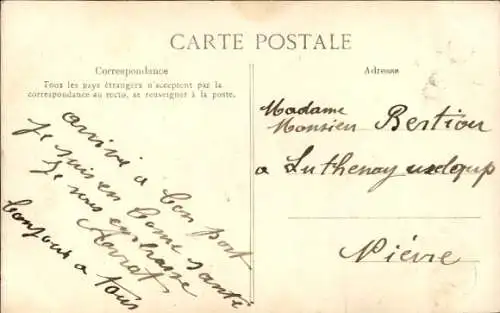 CARTE POSTALE
Correspondance
Tous les pays étrangers n'acceptent pas la
correspondance au recto, se renseigner à la poste.
arrivé a bon port
Je suis en bonne santé
Je vous embrasse
bonjour a tous
Adresse
Madame
Monsieu Bertion
a Luthenay uxeloup
Nièvre